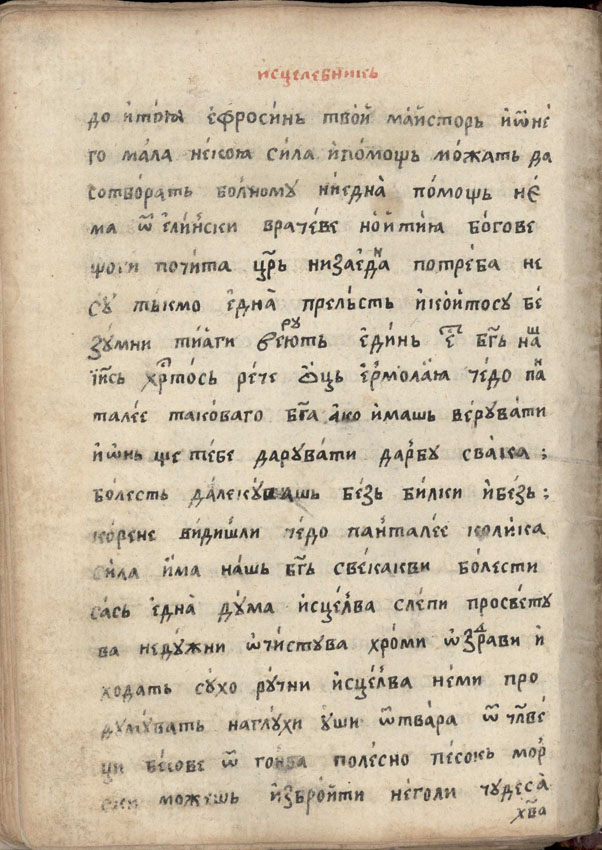 исцелебникь
до итїѧ ефросинь твой майсторь иѡне
го мала некоѧ сила ипомощь можать да
сотворать болному ниедна помощь не
ма ѿ елински врачеве ноитиѧ богове
що ги почита цр҃ь низаедна потреба не
су тькмо една прелесть икоитосу бе
зумни тиаги верують единь е҃ бг҃ь нашь
іи҃сь хр҃тось рече ѻць ермолаѧ чедо пан
талее таковаго бг҃а ако имашь верувати
иѡнь ще тебе дарувати дарбу свака ;
болесть далекувашь безь билки ибезь ;
корене видишли чедо панталее колика
сила има нашь бг҃ь свекакви болести
сась една дума исцелѣва слепи просвету
ва недужни ѡчистува хроми ѡздрави и
ходать сухо ручни исцелѣва неми про
думувать наглухи уши ѿтвара ѿ чл҃ве
ци бесове ѿ гонва полесно песокь мор
ски можешь изброити неголи чудеса
хв҃а